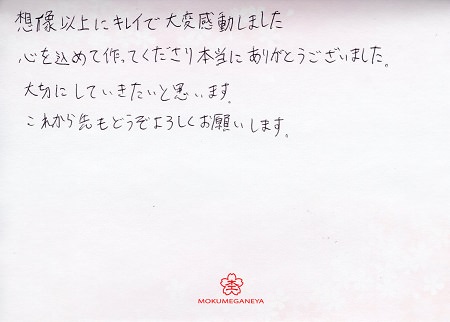 想像以上にキレイで大変感動しました
心を込めて作ってくださり本当にありがとうございました。
大切にしていきたいと思います。
これから先もどうぞよろしくお願いします。
MOKUMEGANEYA